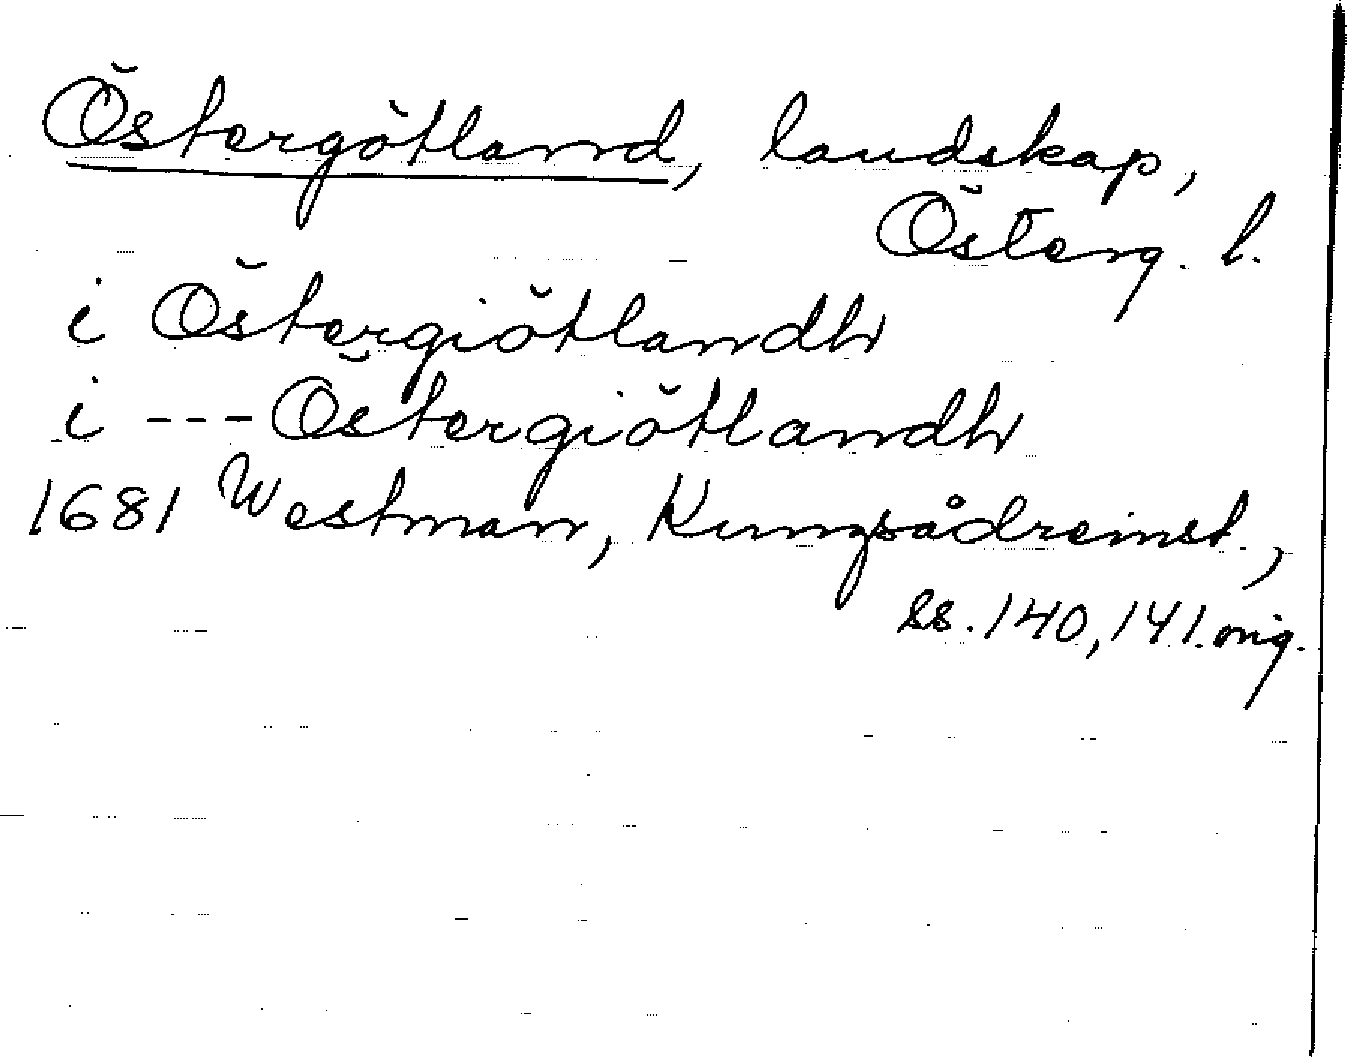 Östergötland, landskap,
Österg. l.
i Östergiötlandh
i --- Östergiötlandh
1681 Westman, Kungsådreinst.,
ss. 140, 141. orig.